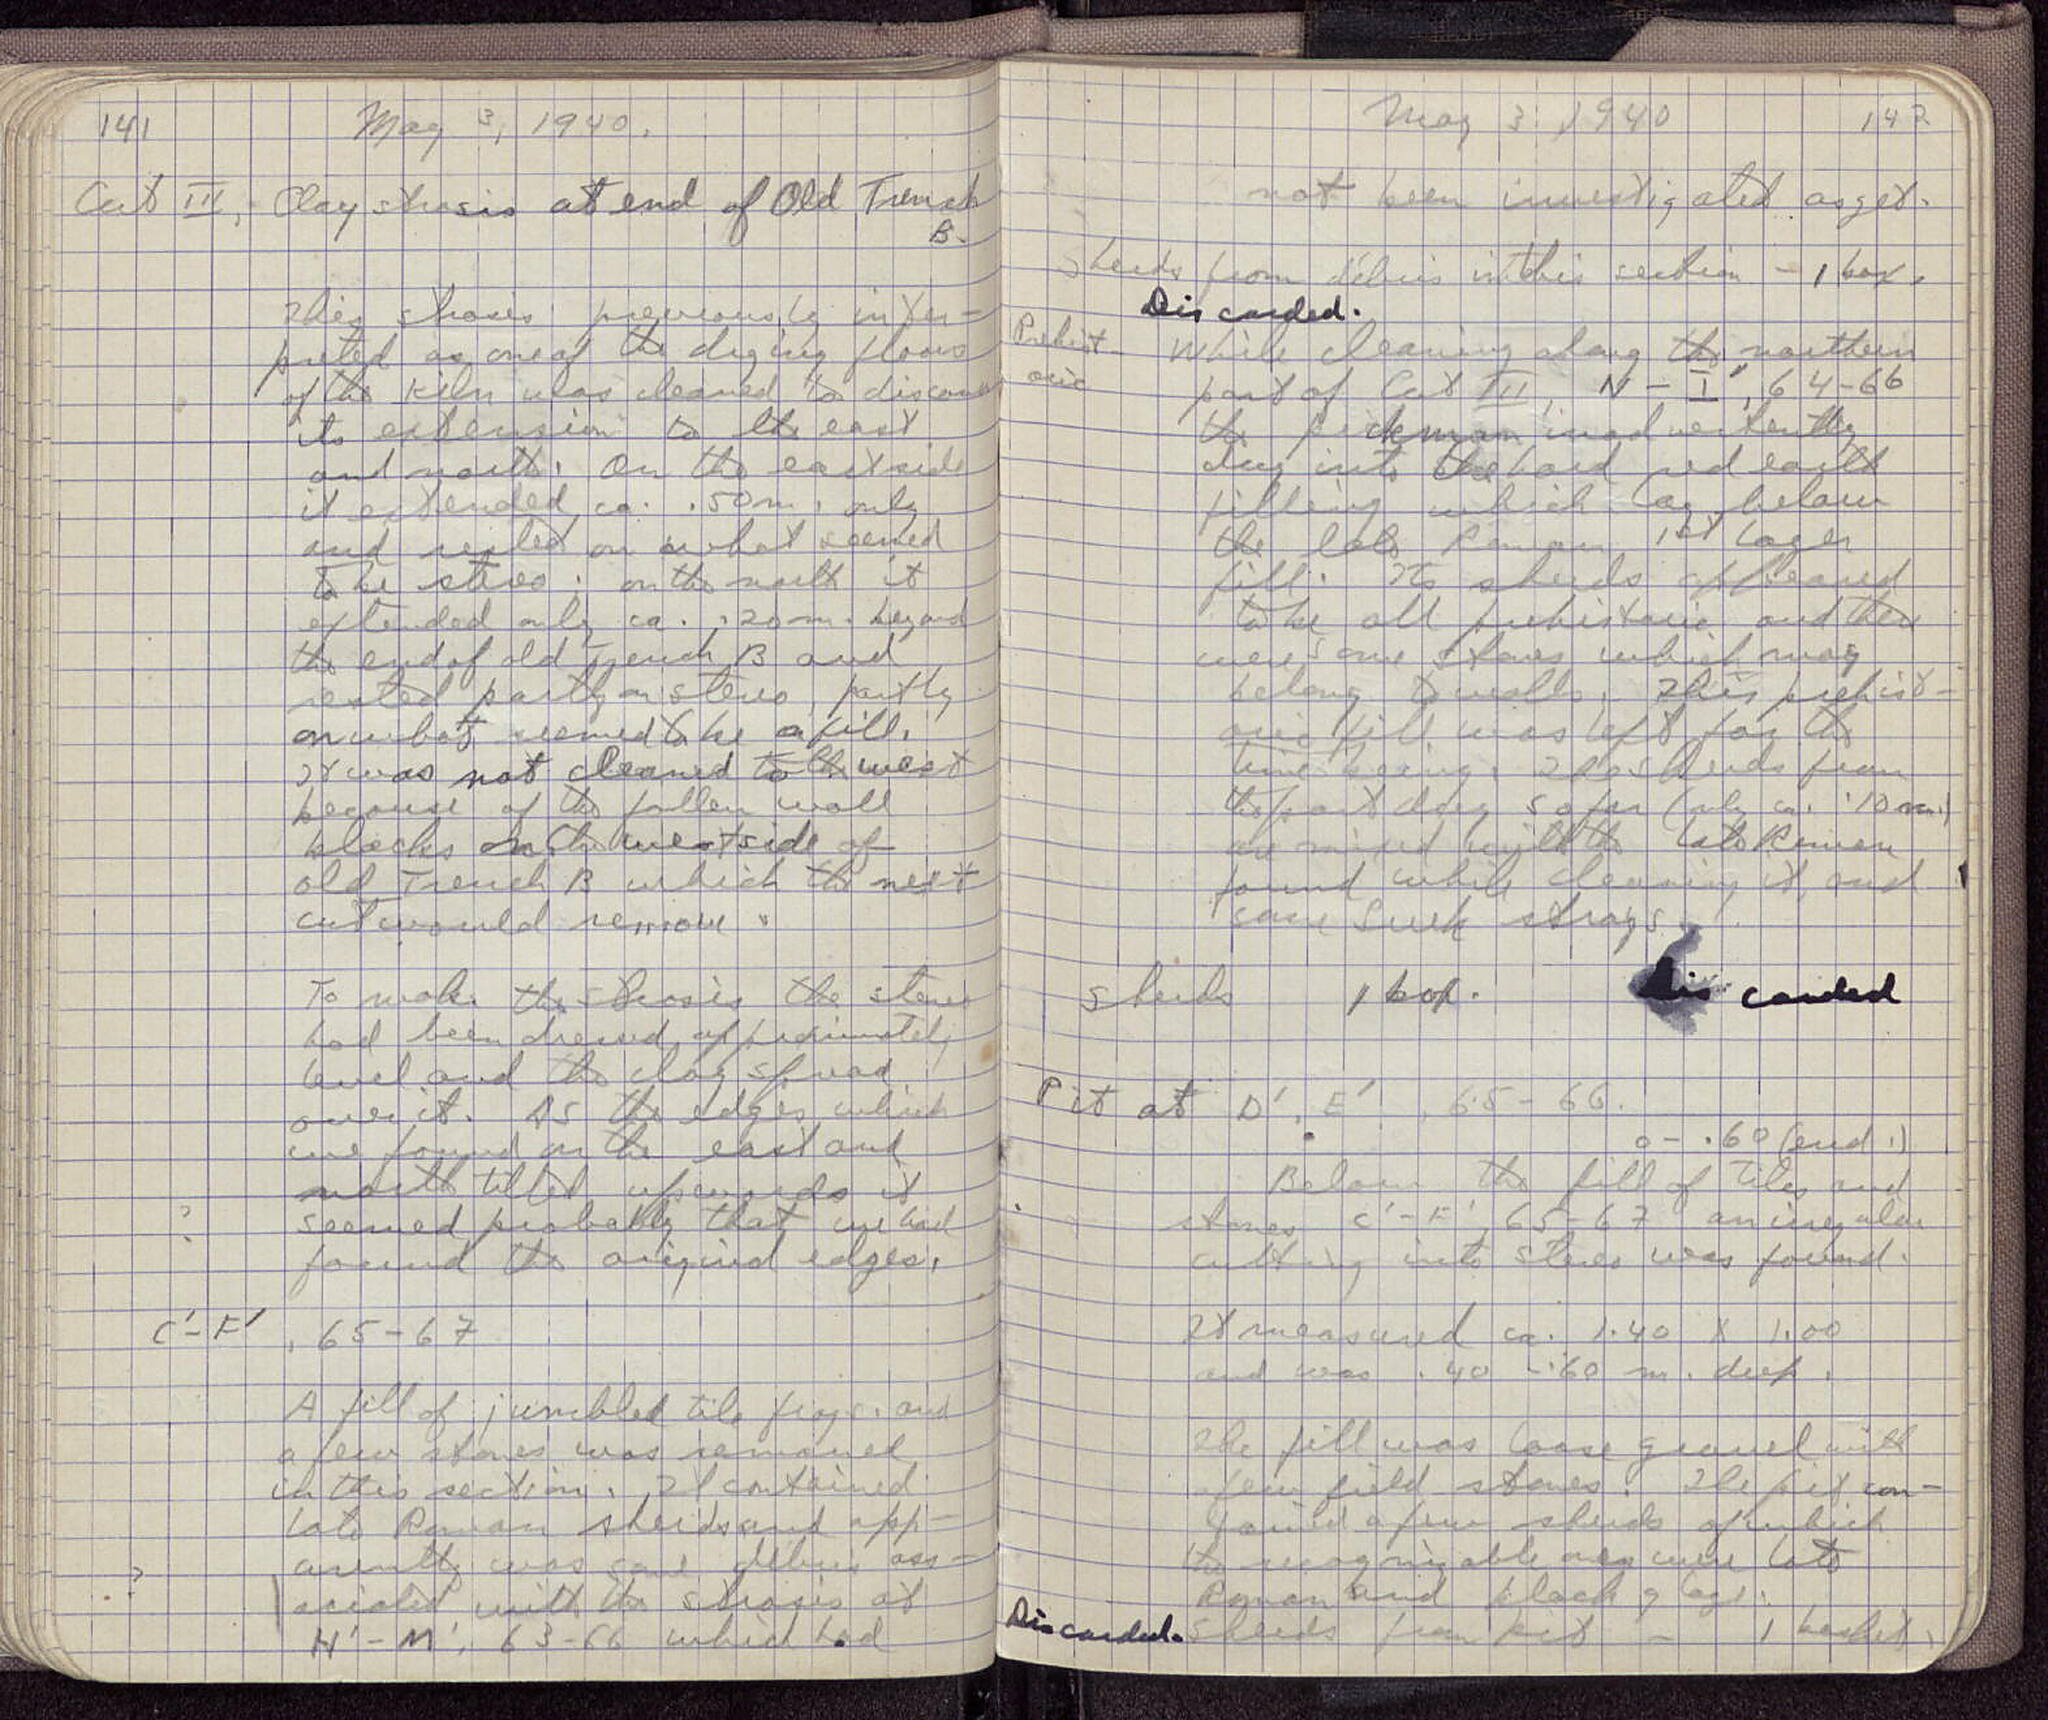 141
May 3, 1940.
Cut III, - Clay strosis at end of Old Trench
B.
This strosis previously inter-
preted as one of the drying floors
of the kiln was cleaned to discover
its extension to the east
and north. On the east side
it extended ca. .50 m. only
and rested on what seemed
to be stereo; on the north it
extended only ca. .20 m. beyond
the end of old Trench B and
rested partly on stereo, partly
on what seemed to be a fill.
It was not cleaned to the west
because of the fallen wall
blocks on the west side of
old Trench B which the next
cut would remove.
To make the strosis the stereo
had been dressed approximately
level and the clay spread
over it. As the edges which
we found on the east and
north tilted upwards it
? seemed probably that we had
found the original edges.
C'-F', 65-67
A fill of jumbled tile frags. and
a few stones was removed
in this section. It contained
late Roman sherds and app-
arently was some debris ass-
? ociated with the strosis at
H'-M', 63-66 which had
May 3, 1940
142
not been investigated as yet.
Sherds from debris in this section - 1 box.
Discarded.
Prehist-
oric
While cleaning along the northern
part of Cut III, N-I', 64-66
the pickman inadvertently
dug into the hard red earth
filling which lay below
the late Roman 1st layer
fill. Its sherds appeared
to be all prehistoric and there
were some stones which may
belong to walls. This prehist-
oric fill was left for the
time being. The sherds from
the part dug so far (only ca. .10 m.)
are mixed with the late Roman
found while cleaning it, and
some Greek strays.
Sherds 1 box. Discarded
Pit at D', E', 65-66.
0-.60 (end.)
Below the fill of tiles and
stones C'-F', 65-67 an irregular
cutting into stereo was found.
It measured ca. 1.40 x 1.00
and was .40-.60 m. deep.
The fill was loose gravel with
a few field stones. The pit con-
tained a few sherds of which
the recognizable ones were late
Roman and black glaze.
Discarded. Sherds from pit - 1 basket.